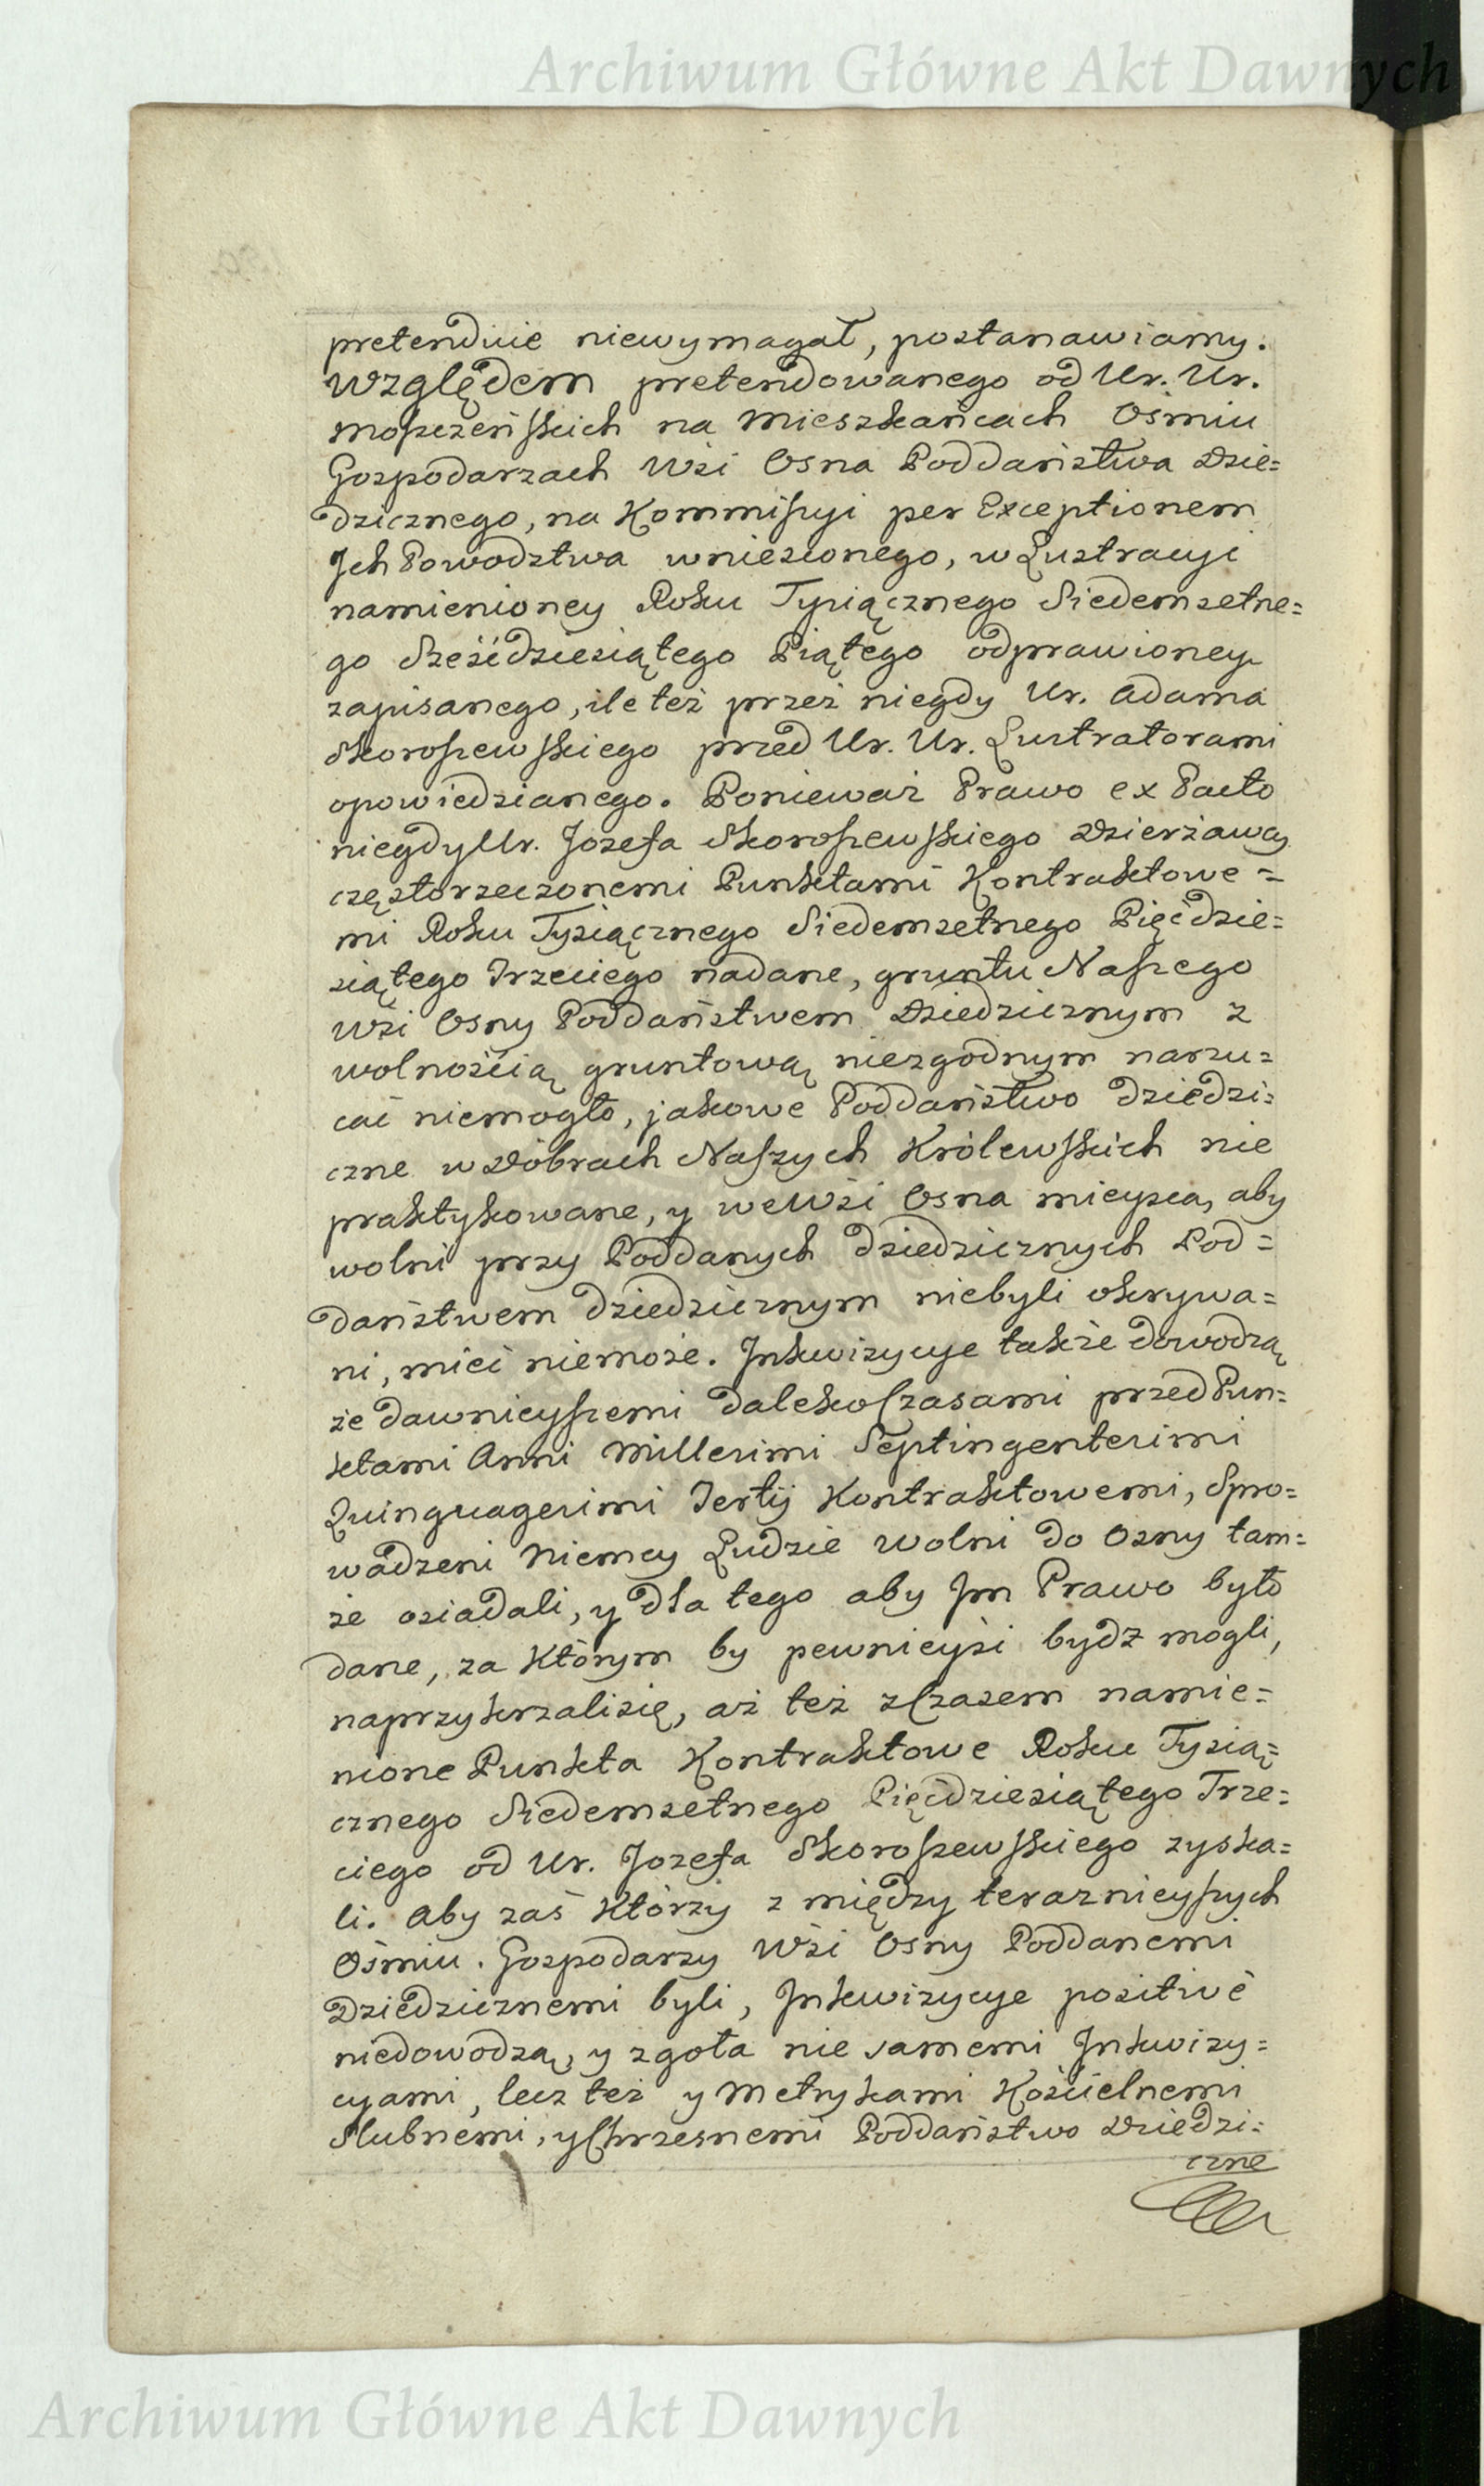 Archiwum Główne Akt Dawnych
pretendiie niewymagał, postanawiamy.
Względem pretendowanego od Ur. Ur.
Moszczeńskich na Mieszkańcach Ośmiu
Gospodarzach Wsi Osna Poddaństwa Dzie=
dzicznego, na Kommissyi per Exceptionem
Jch Powodztwa wniesionego, w Lustracyi
namienioney Roku Tysiącznego Siedemsetne=
go Sześćdziesiątego Piątego odprawioney
zapisanego, ile też przez niegdy Ur. Adama
Skoroszewskiego przed Ur. Ur. Lustratorami
opowiedzianego. Ponieważ Prawo ex Pacto
niegdy Ur. Jozefa Skoroszewskiego Dzierżawcy
częstorzeczonemi Punktami Kontraktowe=
mi Roku Tysiącznego Siedemsetnego Pięćdzie=
siątego Trzeciego nadane, gruntu Naszego
Wsi Osny Poddaństwem Dziedzicznym z
wolnością gruntową niezgodnym narzu=
cać niemogło, jakowe Poddaństwo dziedzi=
czne w Dobrach Naszych Królewskich nie
praktykowane, y we Wsi Osna mieysca, aby
wolni przy Poddanych dziedzicznych Pod=
daństwem dziedzicznym niebyli okrywa=
ni, mieć niemoże. Jnkwizycye także dowodzą
że dawnieyszemi daleko Czasami przed Pun=
ktami Anni Millesimi Septingentesimi
Quinquagesimi Tertij Kontraktowemi, Spro=
wadzeni Niemcy Ludzie wolni do Osny tam=
że osiadali, y dla tego aby Jm Prawo było
dane, za którym by pewnieysi bydz mogli,
naprzykrzalisię, aż też z Czasem namie=
nione Punkta Kontraktowe Roku Tysią=
cznego Siedemsetnego Pięćdziesiątego Trze=
ciego od Ur. Jozefa Skoroszewskiego zyska=
li. Aby zaś którzy z między teraznieyszych
Ośmiu. Gospodarzy Wsi Osny Poddanemi
Dziedzicznemi byli, Jnkwizycye positivè
niedowodzą, y zgoła nie samemi Jnkwizy=
cyami, lecz też y Metrykami Kościelnemi
Slubnemi, y Chrzesnemi Poddaństwo Dziedzi=
czne
Archiwum Główne Akt Dawnych